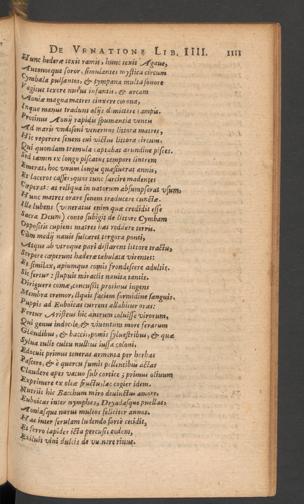 DE VENATIONE LIB. IIII. IIII
Hunc hederæ texit ramis, hunc texit Agaue,
Autonoeque soror, simulantes mystica circum
Cymbala pulsantes, & tympana multa sonore
Vagitus texere nouos infantis, & arcam
Aoniæ magna matres cinxere corona,
Inque manus tradunt olijs dimittere campis.
Protinus Aonij rapidis spumantia ventis
Ad maris vndisoni venerunt littora matres,
Hic reperere senem cui victus littora circum,
Qui quondam tremula captabat arundine pisces.
Sed tamen ex longo piscatus tempore lintrem
Emeras, hoc vnum longu quæsiuerat annis,
Et laceros casses, quos tunc sarcire madentes
Cœperat: at reliqua in natorum absumpserat vsum,
Hunc matres orare senem traducere cunctæ.
Ille lubens (veneratus enim quæ credidit esse
Sacra Deum) conto subigit de littore Cymbam
Oppositis cupiens matres has rodiere terris.
Cum medij nauis sulcaret tergora ponti,
Atque ab vtroque pari distarent littore tractu,
Serpere cœperunt hederæ tabulata virentes:
Et similax, apiumque comis frondescere adultis.
Bis fertur: stupuit miraclis nauita tantis.
Diriguere comæ, concussis protinus ingens
Membra tremor, liquit faciem formidine sanguis.
Puppis ad Euboicas currens allabitur oras.
Fertur Aristeus hic antrum coluisse virorum,
Qui genus indocile, & viuentum more ferarum
Glandibus, & baccis, pomis syluestribus, & quæ
Sylua tulit cultu nullius iussa coloni.
Edocuit primus teneras armenta per herbas
Pascere, & è quercu fumis pellentibus actas
Claudere apes vacuo sub cortice; primus oliuum
Exprimere ex oleæ fructu, lac cogier idem.
Nutriit hic Bacchum miro deuinctus amore,
Euboicas inter nymphas, Dryadasque puellas.
Aoniasque nurus multos feliciter annos.
Hac inter ferulam ludendo forte cecidit,
Et ferro lapides icta percussit eodem,
Exiluit vini dulcis de vulnere riuus.